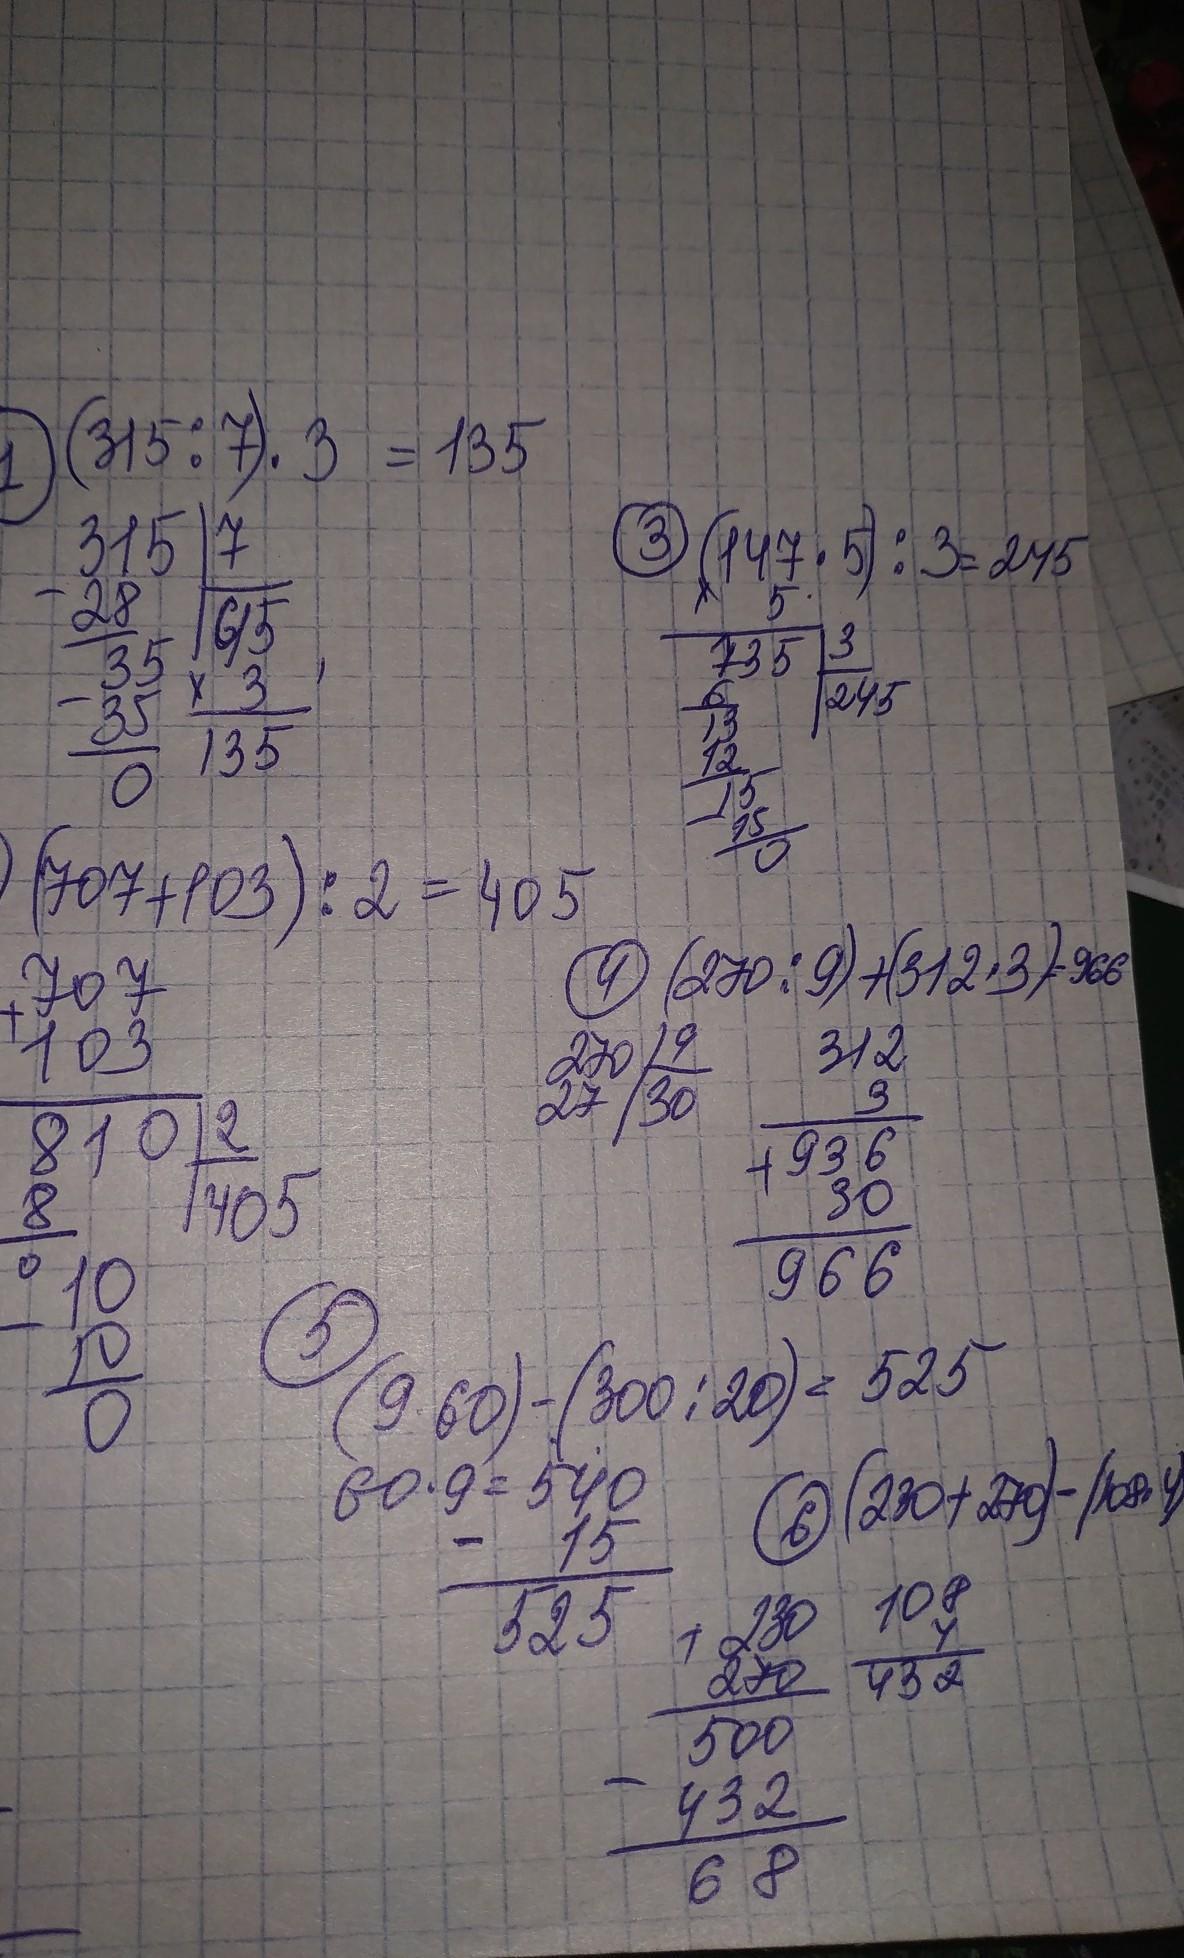 1 (315:7)·3 = 135
315 7
- 28 45
- 35 × 3
35 135
0
) (707+103):2 = 405
+ 707
103
810 2
8 405
0 10
- 10
0
3 (147·5):3=245
× 5
735 3
6 245
13
12
- 15
15
0
4 (270:9)+(312·3)=966
270 9
27 30
312
3
+ 936
30
966
5
(9·60)-(300:20)= 525
60·9=540
- 15
525
6 (230+270)-(108·4)
+ 230
270
500
- 432
68
108
4
432